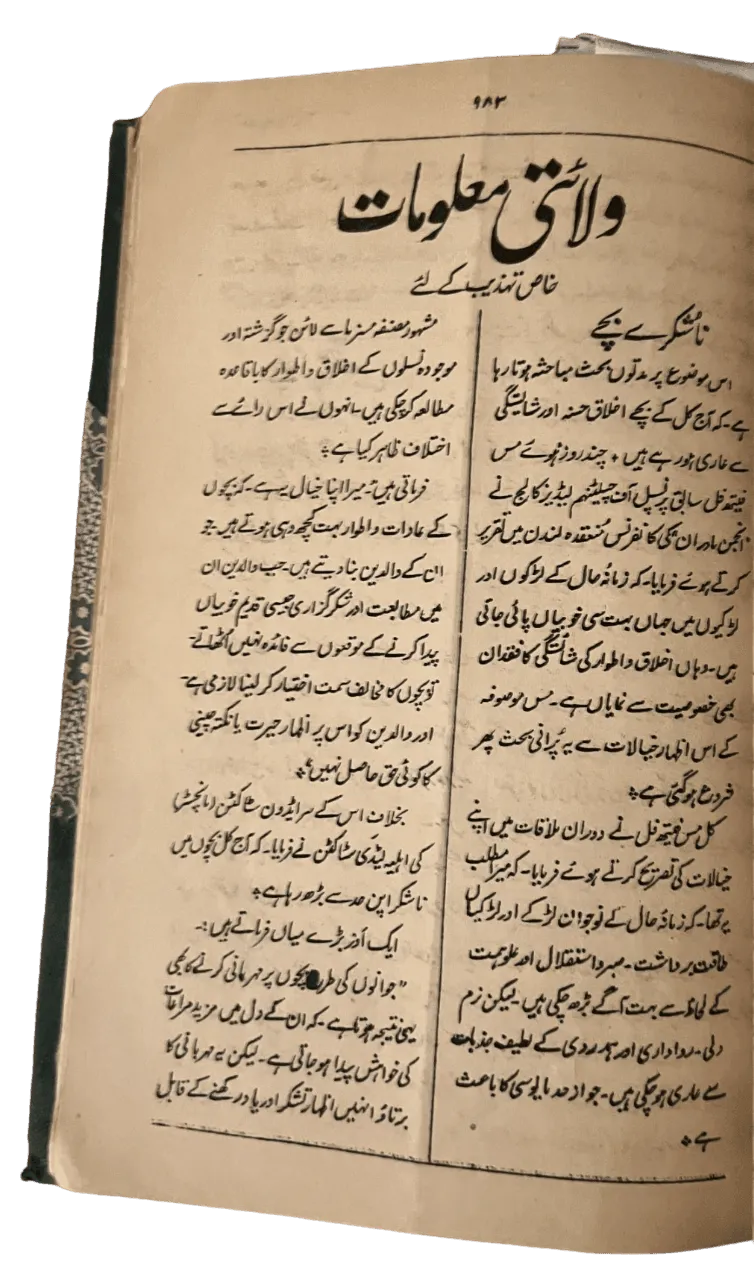 ۹۸۳
ولائتی معلومات
خاص تہذیب کے لئے
ناشکرے بچے
اس موضوع پر مدتوں بحث مباحثہ ہوتا رہا
ہے۔ کہ آج کل کے بچے اخلاق حسنہ اور شایستگی
سے عاری ہو رہے ہیں ٭ چند روز ہوئے مس
فیتھ فل سابق پرنسپل آف چیلٹنہم لیڈیز کالج نے
انجمن مادران کی کانفرنس منعقدہ لندن میں تقریر
کرتے ہوئے فرمایا۔ کہ زمانۂ حال کے لڑکوں اور
لڑکیوں میں جہاں بہت سی خوبیاں پائی جاتی
ہیں۔ وہاں اخلاق واطوار کی شائستگی کا فقدان
بھی خصوصیت سے نمایاں ہے۔ مس موصوفہ
کے اس اظہار خیالات سے یہ پُرانی بحث پھر
شروع ہوگئی ہے ٭
کل مس فیتھ فل نے دوران ملاقات میں اپنے
خیالات کی تصریح کرتے ہوئے فرمایا۔ کہ میرا مطلب
یہ تھا۔ کہ زمانۂ حال کے نوجوان لڑکے اور لڑکیاں
طاقت برداشت۔ صبر و استقلال اور علوہمت
کے لحاظ سے بہت آگے بڑھ چکی ہیں۔ لیکن نرم
دلی۔ رواداری اور ہمدردی کے لطیف جذبات
سے عاری ہوچکی ہیں۔ جو از حد مایوسی کا باعث
ہے ٭
مشہور مصنفہ مسز ماے لائن جو گزشتہ اور
موجودہ نسلوں کے اخلاق واطوار کا باقاعدہ
مطالعہ کرچکی ہیں۔ انہوں نے اس رائے سے
اختلاف ظاہر کیا ہے ٭
فرماتی ہیں "میرا اپنا خیال یہ ہے۔ کہ بچوں
کے عادات واطوار بہت کچھ وہی ہوتے ہیں۔ جو
ان کے والدین بنا دیتے ہیں۔ جب والدین ان
میں مطابعت اور شکر گزاری جیسی قدیم خوبیاں
پیدا کرنے کے موقعوں سے فائدہ نہیں اٹھاتے۔
تو بچوں کا مخالف سمت اختیار کرلینا لازمی ہے۔
اور والدین کو اس پر اظہار حیرت یا نکتہ چینی
کا کوئی حق حاصل نہیں" ٭
بخلاف اس کے سر ایڈون سٹاکٹن (مانچسٹر)
کی اہلیہ لیڈی سٹاکٹن نے فرمایا۔ کہ آج کل بچوں میں
ناشکراپن حد سے بڑھ رہا ہے ٭
ایک اَور بڑے میاں فرماتے ہیں:۔
"جوانوں کی طرح بچوں پر مہربانی کرنے کا بھی
یہی نتیجہ ہوتا ہے۔ کہ ان کے دل میں مزید مراعات
کی خواہش پیدا ہوجاتی ہے۔ لیکن یہ مہربانی کا
برتاؤ انہیں اظہار تشکر اور یاد رکھنے کے قابل